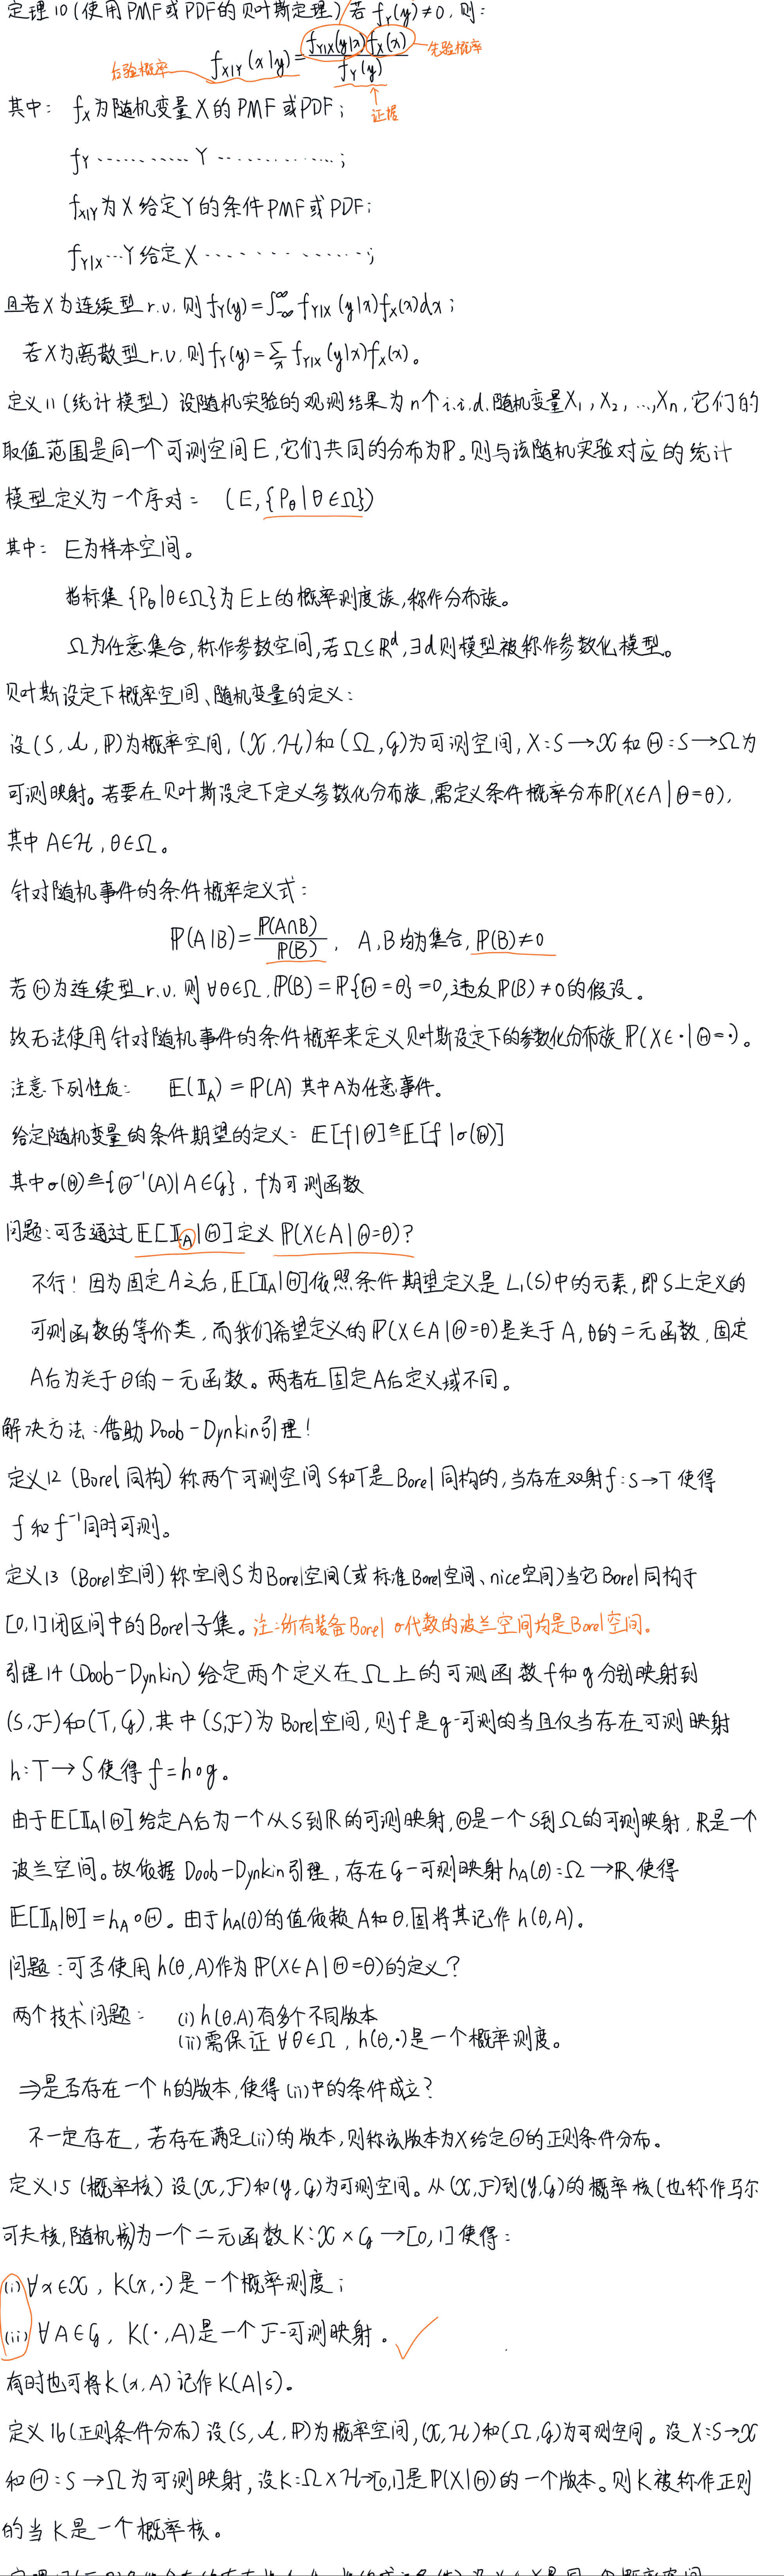 定理10(使用PMF或PDF的贝叶斯定理)若 f_Y(y)≠0,则:
后验概率 f_{X|Y}(x|y)=\frac{f_{Y|X}(y|x)f_X(x)}{f_Y(y)} 先验概率
证据
其中: f_X为随机变量X的PMF或PDF;
f_Y············Y··············;
f_{X|Y}为X给定Y的条件PMF或PDF;
f_{Y|X}···Y给定X··············;
且若X为连续型r.v.则f_Y(y)=∫_{-∞}^{∞} f_{Y|X}(y|x)f_X(x)dx;
若X为离散型r.v.则f_Y(y)=∑_x f_{Y|X}(y|x)f_X(x)。
定义11(统计模型)设随机实验的观测结果为n个i.i.d.随机变量X₁,X₂,…,Xₙ,它们的
取值范围是同一个可测空间E,它们共同的分布为ℙ。则与该随机实验对应的统计
模型定义为一个序对: (E,{P_θ|θ∈Ω})
其中: E为样本空间。
指标集{P_θ|θ∈Ω}为E上的概率测度族,称作分布族。
Ω为任意集合,称作参数空间,若Ω⊆ℝ^d,∃d则模型被称作参数化模型。
贝叶斯设定下概率空间、随机变量的定义:
设(S,𝒜,ℙ)为概率空间,(𝒳,ℋ)和(Ω,𝒢)为可测空间,X:S→𝒳和Θ:S→Ω为
可测映射。若要在贝叶斯设定下定义参数化分布族,需定义条件概率分布ℙ(X∈A|Θ=θ),
其中A∈ℋ,θ∈Ω。
针对随机事件的条件概率定义式:
ℙ(A|B)=\frac{ℙ(A∩B)}{ℙ(B)}, A,B均为集合,ℙ(B)≠0
若Θ为连续型r.v.则∀θ∈Ω,ℙ(B)=ℙ{Θ=θ}=0,违反ℙ(B)≠0的假设。
故无法使用针对随机事件的条件概率来定义贝叶斯设定下的参数化分布族ℙ(X∈·|Θ=·)。
注意下列性质: 𝔼(𝕀_A)=ℙ(A)其中A为任意事件。
给定随机变量的条件期望的定义:𝔼[f|Θ]≙𝔼[f|σ(Θ)]
其中σ(Θ)≙{Θ⁻¹(A)|A∈𝒢},f为可测函数
问题:可否通过𝔼[𝕀_A|Θ]定义ℙ(X∈A|Θ=θ)?
不行!因为固定A之后,𝔼[𝕀_A|Θ]依照条件期望定义是L₁(S)中的元素,即S上定义的
可测函数的等价类,而我们希望定义的ℙ(X∈A|Θ=θ)是关于A,θ的二元函数,固定
A后为关于θ的一元函数。两者在固定A后定义域不同。
解决方法:借助Doob-Dynkin引理!
定义12(Borel同构)称两个可测空间S和T是Borel同构的,当存在双射f:S→T使得
f和f⁻¹同时可测。
定义13(Borel空间)称空间S为Borel空间(或标准Borel空间、nice空间)当它Borel同构于
[0,1]闭区间中的Borel子集。注:所有装备Borel σ代数的波兰空间均是Borel空间。
引理14(Doob-Dynkin)给定两个定义在Ω上的可测函数f和g分别映射到
(S,ℱ)和(T,𝒢),其中(S,ℱ)为Borel空间,则f是g-可测的当且仅当存在可测映射
h:T→S使得f=h∘g。
由于𝔼[𝕀_A|Θ]给定A后为一个从S到ℝ的可测映射,Θ是一个S到Ω的可测映射,ℝ是一个
波兰空间。故依据Doob-Dynkin引理,存在𝒢-可测映射h_A(θ):Ω→ℝ使得
𝔼[𝕀_A|Θ]=h_A∘Θ。由于h_A(θ)的值依赖A和θ,因将其记作h(θ,A)。
问题:可否使用h(θ,A)作为ℙ(X∈A|Θ=θ)的定义?
两个技术问题: (i)h(θ,A)有多个不同版本
(ii)需保证∀θ∈Ω,h(θ,·)是一个概率测度。
⇒是否存在一个h的版本,使得(ii)中的条件成立?
不一定存在,若存在满足(ii)的版本,则称该版本为X给定Θ的正则条件分布。
定义15(概率核)设(𝒳,ℱ)和(𝒴,𝒢)为可测空间。从(𝒳,ℱ)到(𝒴,𝒢)的概率核(也称作马尔
可夫核,随机核)为一个二元函数K:𝒳×𝒢→[0,1]使得:
(i)∀x∈𝒳,K(x,·)是一个概率测度;
(ii)∀A∈𝒢,K(·,A)是一个ℱ-可测映射。
有时也可将K(x,A)记作K(A|s)。
定义16(正则条件分布)设(S,𝒜,ℙ)为概率空间,(𝒳,ℋ)和(Ω,𝒢)为可测空间。设X:S→𝒳
和Θ:S→Ω为可测映射,设K:Ω×ℋ→[0,1]是ℙ(X|Θ)的一个版本。则K被称作正则
的当K是一个概率核。